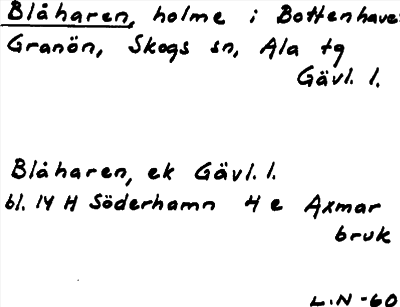 Blåharen, holme i Bottenhavet
Granön, Skogs sn, Ala tg
Gävl. l.
Blåharen, ek Gävl. l.
bl. 14 H Söderhamn 4 e Axmar
bruk
L.N -60